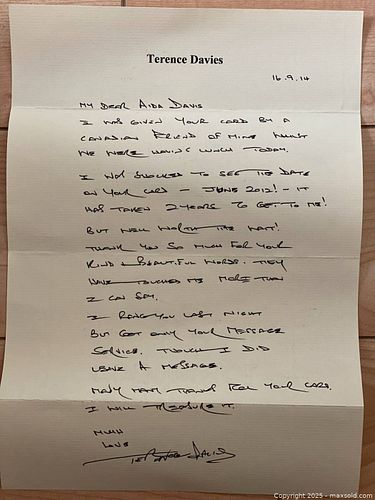 Terence Davies
16.9.14
MY DEAR AIDA DAVIS
I WAS GIVEN YOUR CARD BY A
CANADIAN FRIEND OF MINE WHILST
WE WERE HAVING LUNCH TODAY.
I WAS SHOCKED TO SEE THE DATE
ON YOUR CARD — JUNE 2012! — IT
HAS TAKEN 2 YEARS TO GET TO ME!
BUT WELL WORTH THE WAIT!
THANK YOU SO MUCH FOR YOUR
KIND & BEAUTIFUL WORDS. THEY
HAVE TOUCHED ME MORE THAN
I CAN SAY.
I RANG YOU LAST NIGHT
BUT GOT ONLY YOUR MESSAGE
SERVICE. THOUGH I DID
LEAVE A MESSAGE.
MANY MANY THANKS FOR YOUR CARD.
I WILL TREASURE IT.
MUCH
LOVE
TERENCE DAVIES
Copyright 2025 - maxsold.com